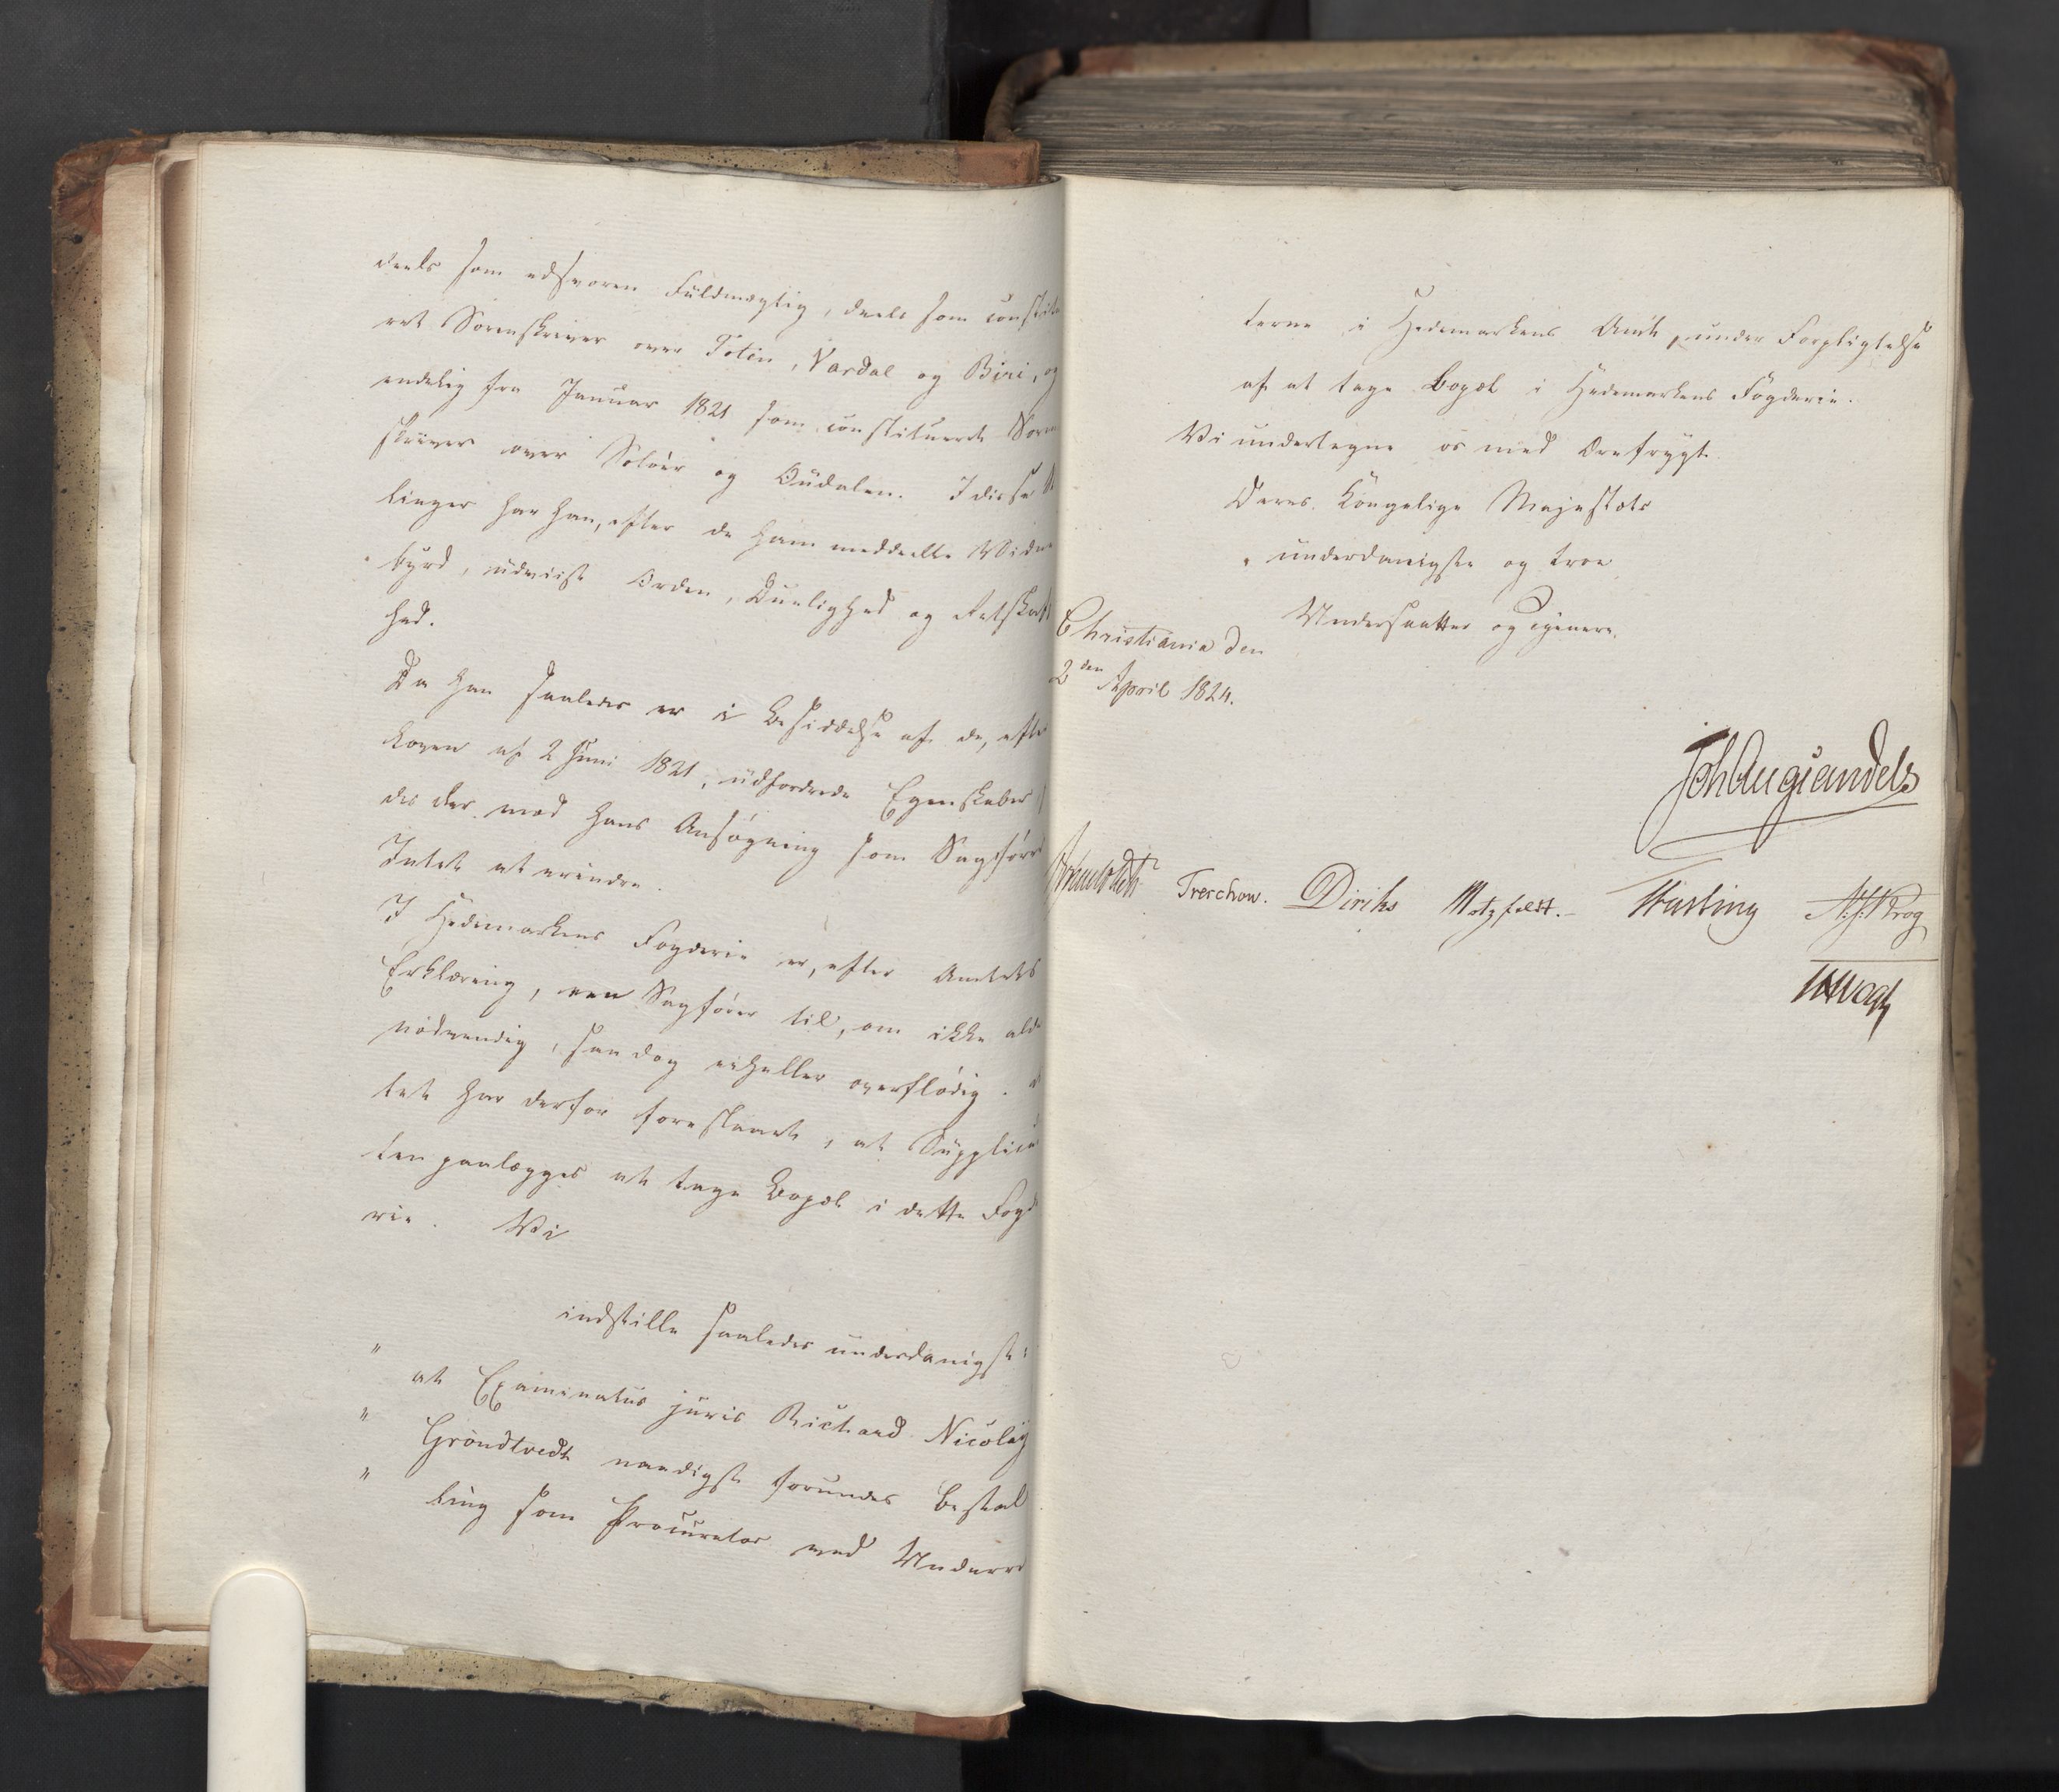 deels som edsvoren Fuldmægtig, deels som constitu
ert Sorenskriver over Toten, Vardal og Biri, og
endelig fra Januar 1821 som constitueret Soren
skriver over Soløer og Oudalen. I disse
linger har han, efter de ham meddeelte Vidne
byrd, udviist Orden, Duelighed og Retskaf
hed.
Da han saaledes er i Besiddelse af de, efter
Loven af 2 Juni 1821, udfordrede Egenskaber
des der mod hans Ansøgning som Sagfører
Intet at erindre.
I Hedemarkens Fogderie er, efter Amtets
Erklæring, een Sagfører til, om ikke alde
nødvendig, saa dog ei heller overflødig.
tet har derfor foreslaaet, at Supplican
ten paalægges at tage Bopæl i dette Fogd
rie. Vi
indstille saaledes underdanigst:
" at Examinatus juris Richard Nicolay
" Gröndtvedt naadigst forundes Bestal
" ling som Procurator ved Underret
terne i Hedemarkens Amt, under Forpligtelse
af at tage Bopæl i Hedemarkens Fogderie.
Vi undertegne os med Ærefrygt
Deres Kongelige Majestæts
underdanigste og troe
Undersaatter og tienere.
Christiania den
2den April 1824.
Joh Aug Sandels
Treschow. Diriks Motzfeldt. Fasting